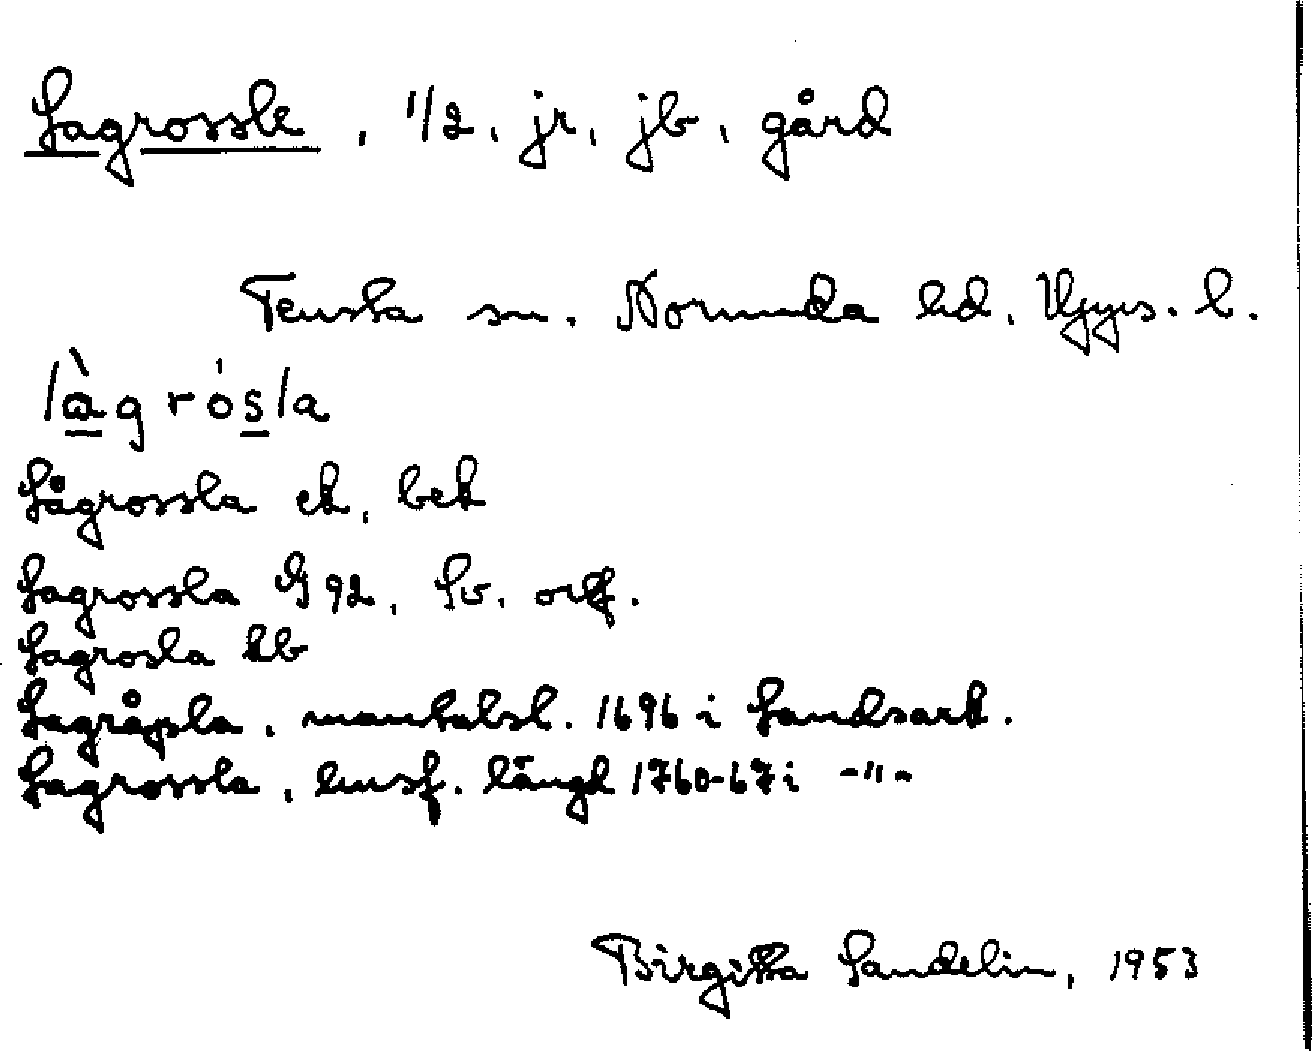 Lagrossle, 1/2, jr, jb, gård
Tensta sn. Norunda hd. Upps. l.
làgrósla
Lågrossla ek, bek
Lagrossla G 92, Sv. orf.
Lagrosla kb
Lagråpla, mantalsl. 1696 i Landsark.
Lagrossla, husf. längd 1760-67 i -"-
Birgitta Sandelin, 1953